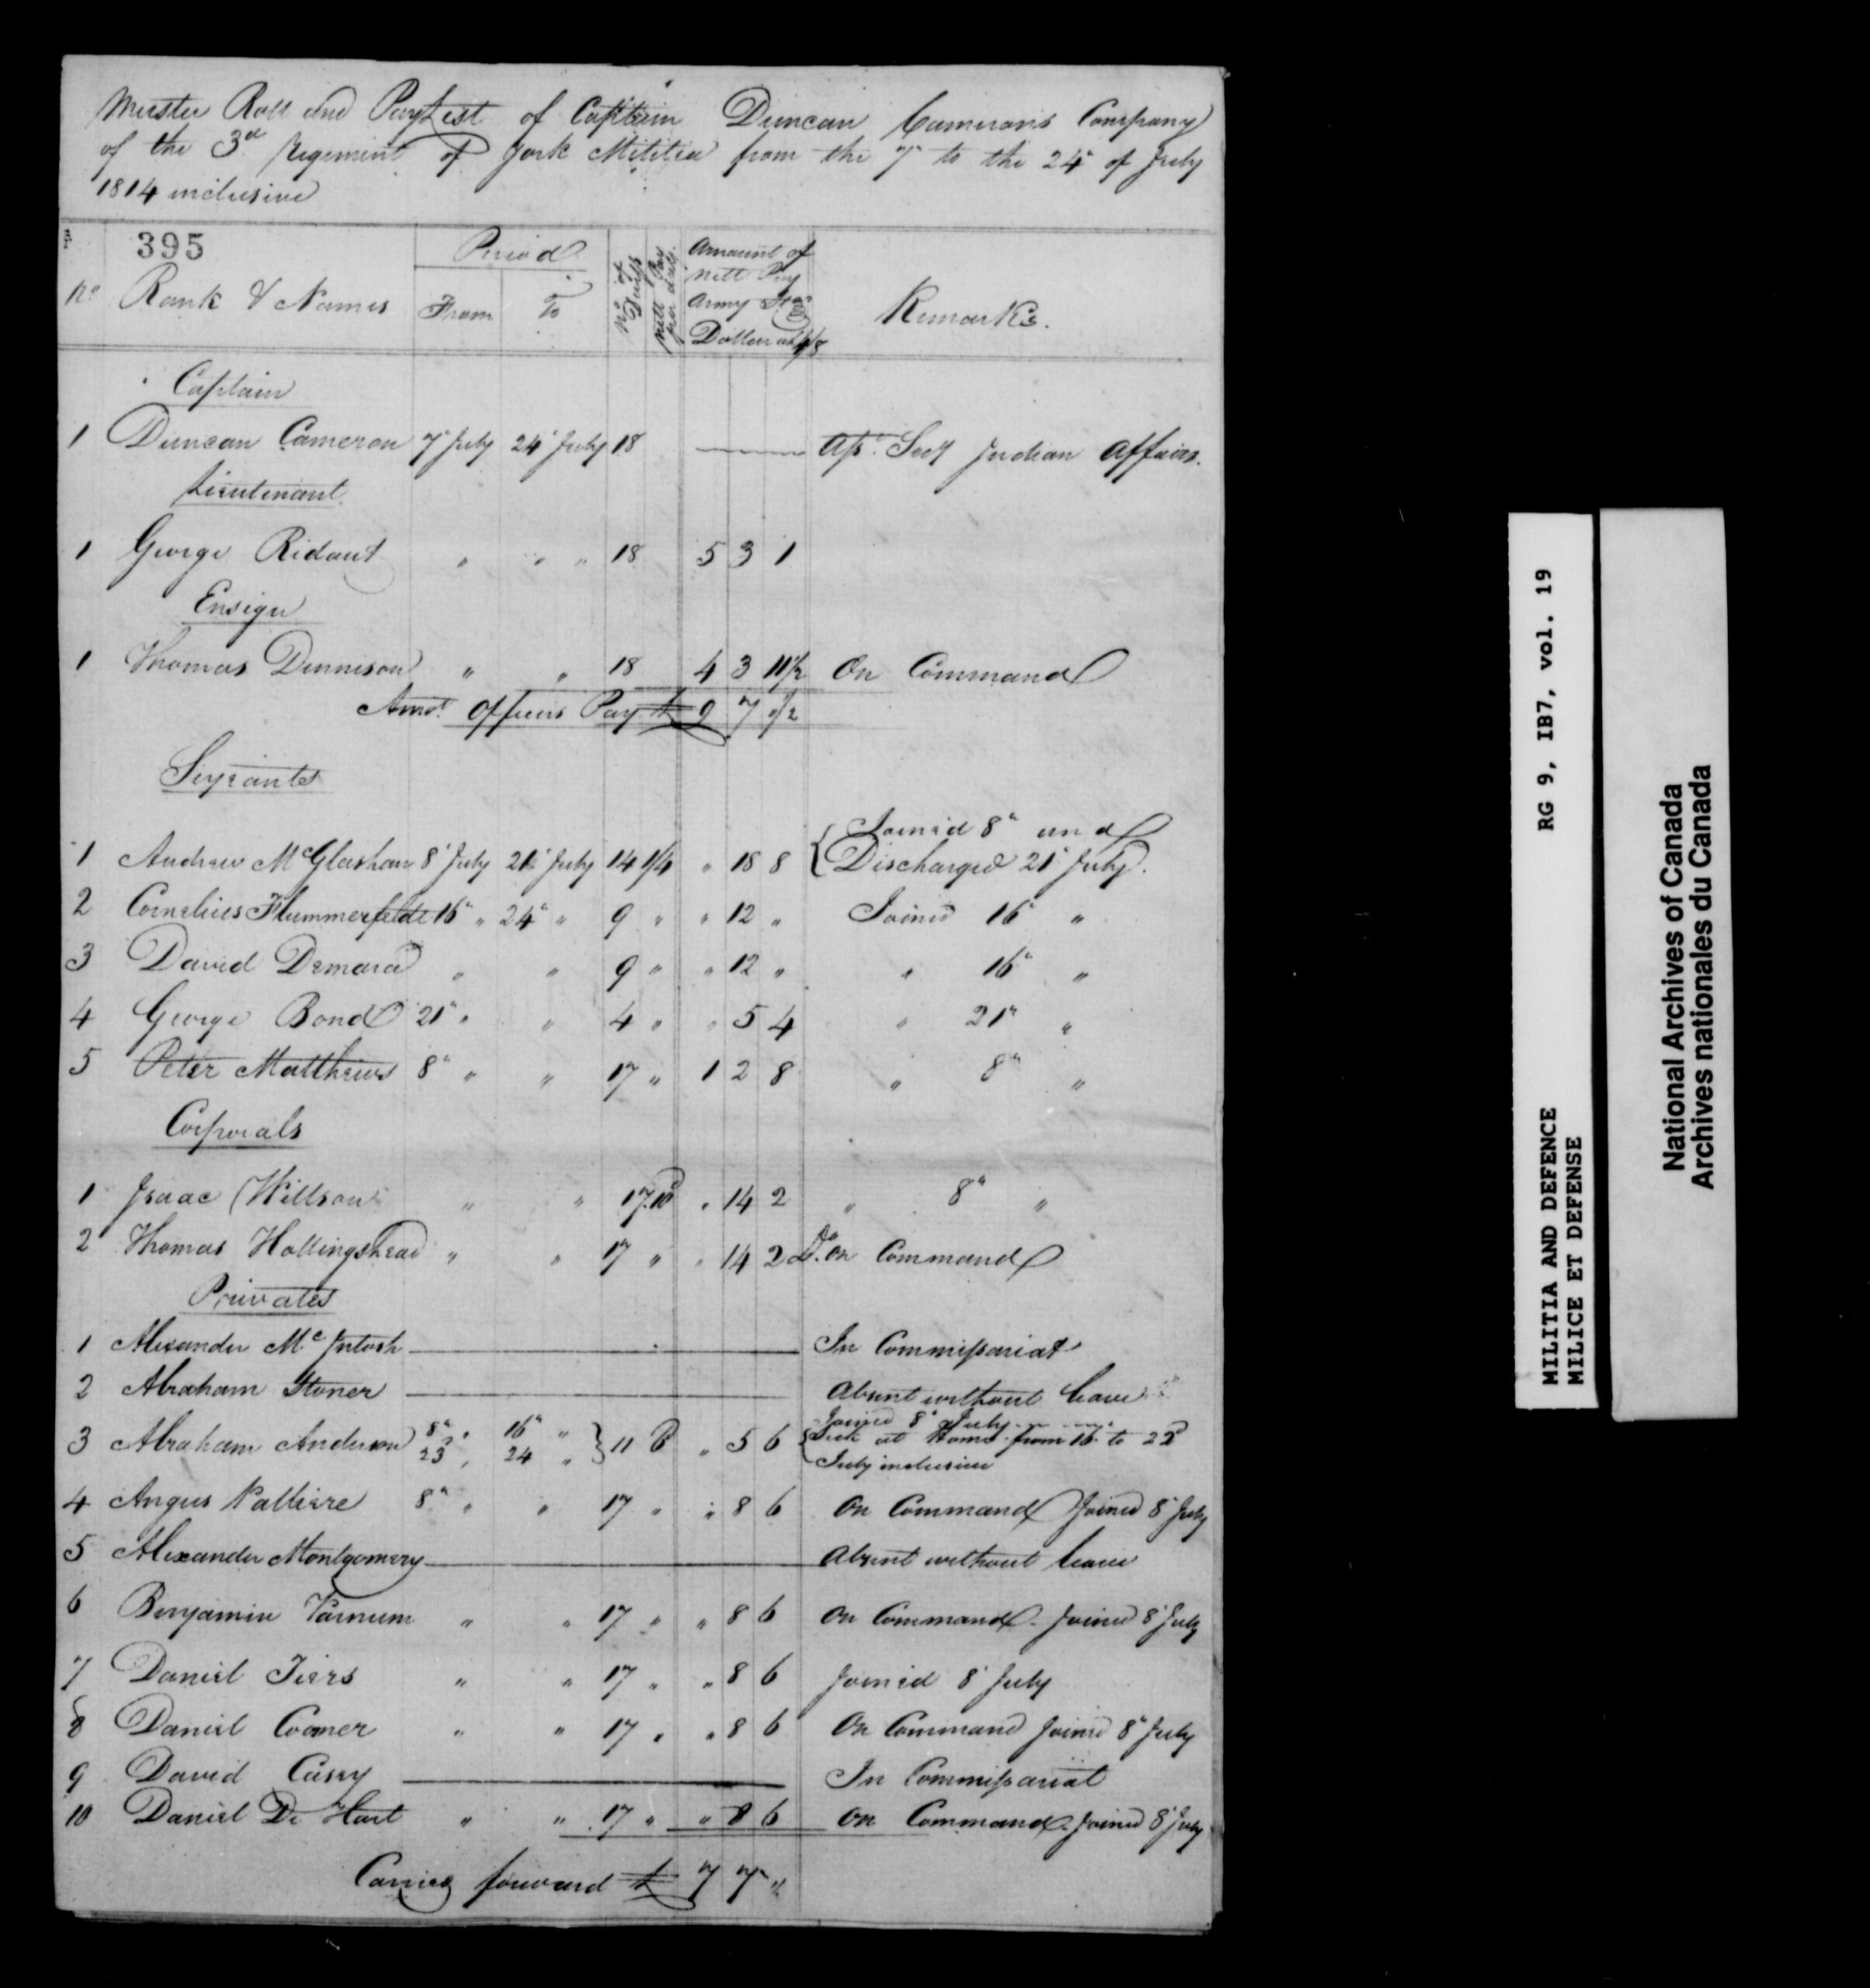 Muster Roll and Pay List of Captain Duncan Camerons Company
of the 3d Regiment of York Militia from the 7" to the 24" of July
1814 inclusive
395
No Rank & Names Period From To No of Days Nett Pay per day Amount of Nett Pay Army Dollar at 4/8 Remarks.
Captain
1 Duncan Cameron 7" July 24" July 18 Asst Secy Indian Affairs.
Lieutenant
1 George Ridout " " " 18 5 3 1
Ensign
1 Thomas Dennison " " 18 4 3 11 1/2 On Command
Amot Officers Pay £ 9 7 0 1/2
Serjeants
1 Andrew McGlashan 8" July 21" July 14 1/4 " 18 8 { Joined 8" and Discharged 21" July.
2 Cornelius Flummerfeldt 16" " 24" " 9 " " 12 " Joined 16" "
3 David Demara " " 9 " " 12 " " 16" "
4 George Bond 21" " " 4 " " 5 4 " 21" "
5 Peter Matthews 8" " " 17 " 1 2 8 " 8" "
Corporals
1 Isaac Willson " " 17 10d " 14 2 " 8" "
2 Thomas Hollingshead " " 17 " " 14 2 Do. On Command
Privates
1 Alexander McIntosh In Commissariat
2 Abraham Stoner Absent without leave
3 Abraham Anderson 8" " 16" " 23d " 24 " } 11 6 " 5 6 { Joined 8" July Sick at Home from 16" to 22d July inclusive
4 Angus Valliere 8" " " 17 " " 8 6 On Command Joined 8" July
5 Alexander Montgomery Absent without leave
6 Benjamin Varnum " " 17 " " 8 6 On Command. Joined 8" July
7 Daniel Tiers " " 17 " " 8 6 Joined 8" July
8 Daniel Coomer " " 17 " " 8 6 On Command Joined 8" July
9 David Casey In Commissariat
10 Daniel De Hart " " 17 " " 8 6 On Command. Joined 8" July
Carried forward £ 7 7 "
MILITIA AND DEFENCE RG 9, IB7, vol. 19
MILICE ET DEFENSE
National Archives of Canada
Archives nationales du Canada